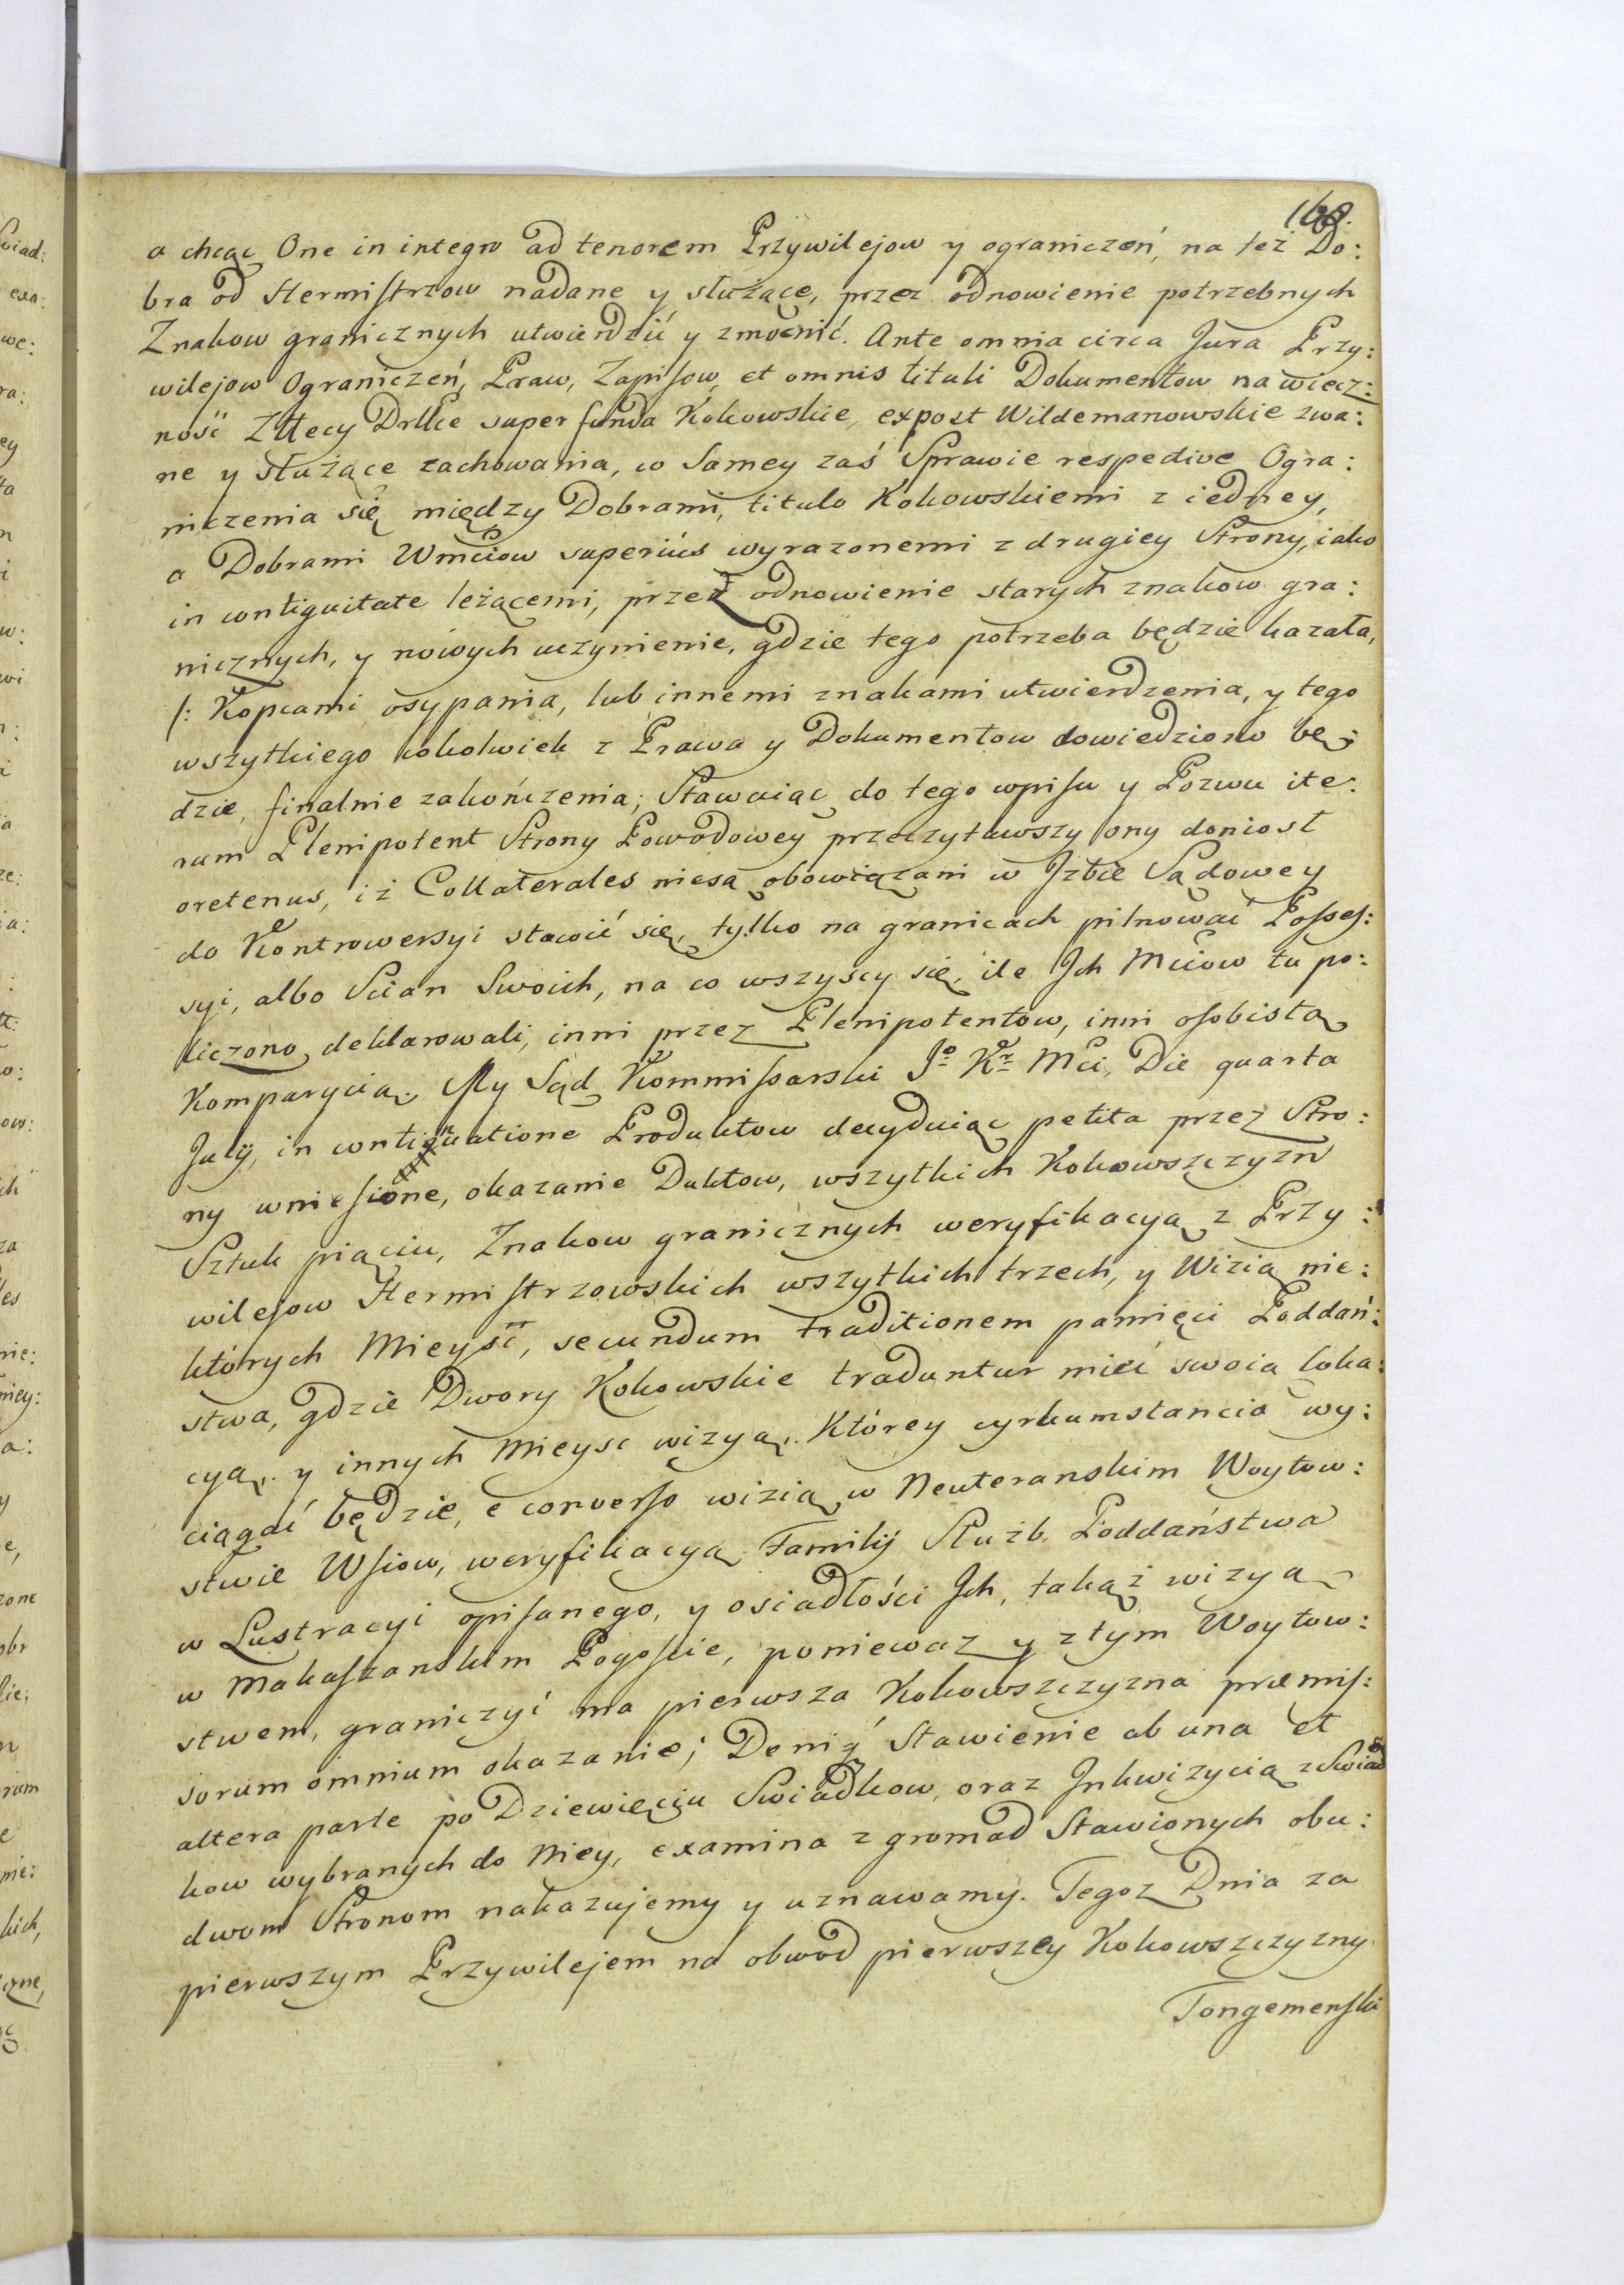 a chcąc One in integro ad tenorem Przywilejow y ograniczeń, na też Do:
bra od Hermistrzow nadane y służące, przez odnowienie potrzebnych
Znakow granicznych utwierdzić y zmocnić. Ante omnia circa Jura Przy:
wilejow Ograniczeń, Praw, Zapisow, et omnis tituli Dokumentow na wiecz:
ność super funda Kokowskie, expost Wildemanowskie zwa:
ne y służące zachowania, w Samey zaś Sprawie respective Ogra:
niczenia się między Dobrami, titulo Kokowskiemi z iedney,
a Dobrami Wmciow superiùs wyrazonemi z drugiey Strony, iako
in contiguitate leżącemi, przez odnowienie starych znakow gra:
nicznych, y nowych uczynienie, gdzie tego potrzeba będzie kazała,
/: Kopcami osypania, lub innemi znakami utwierdzenia, y tego
wszytkiego cokolwiek z Prawa y Dokumentow dowiedziono bę:
dzie, finalnie zakończenia; Stawaiąc do tego wpisu y Pozwu ite:
rum Plenipotent Strony Powodowey przeczytawszy ony doniosł
oretenus, iż Collaterales niesą obowiązani w Jzbie Sądowey
do Kontrowersyi stawić się, tylko na granicach pilnować Posses:
syi, albo Scian Swoich, na co wszyscy się, ile Jch Mciow tu po:
liczono, deklarowali, inni przez Plenipotentow, inni osobistą
Komparycią. My Sąd Kommissarski Jo Kr Mci, Die quarta
Julij, in continuatione Produktow decyduiąc petita przez Stro:
ny wniesione, okazanie Duktow, wszytkich Kokowszczyzn
Sztuk piąciu, Znakow granicznych weryfikacyą z Przy:
wilejow Hermistrzowskich wszytkich trzech, y Wizią nie:
których Mieysć, secundum traditionem pamięci Poddań:
stwa, gdzie Dwory Kokowskie traduntur mieć swoią loka:
cyą. y innych Mieysc wizyą. Którey cyrkumstancia wy:
ciągać będzie, e converso wizią w Neuteranskim Woytow:
stwie Wsiow, weryfikacyą Familij Służb. Poddaństwa
w Lustracyi opisanego, y osiadłości Jch, takąż wizyą
w Makaszanskim Pogoscie, poniewaz y z tym Woytow:
stwem, graniczyć ma pierwsza Kokowszczyzna præmis:
sorum omnium okazanie; Deniq Stawienie ab una et
altera parte po Dziewięciu Swiadkow, oraz Jnkwizycią z Swiad
kow wybranych do Niey, examina z gromad Stawionych obu:
dwom Stronom nakazujemy y uznawamy. Tegoz Dnia za
pierwszym Przywilejem na obwod pierwszey Kokowszczyzny
Tongemenski